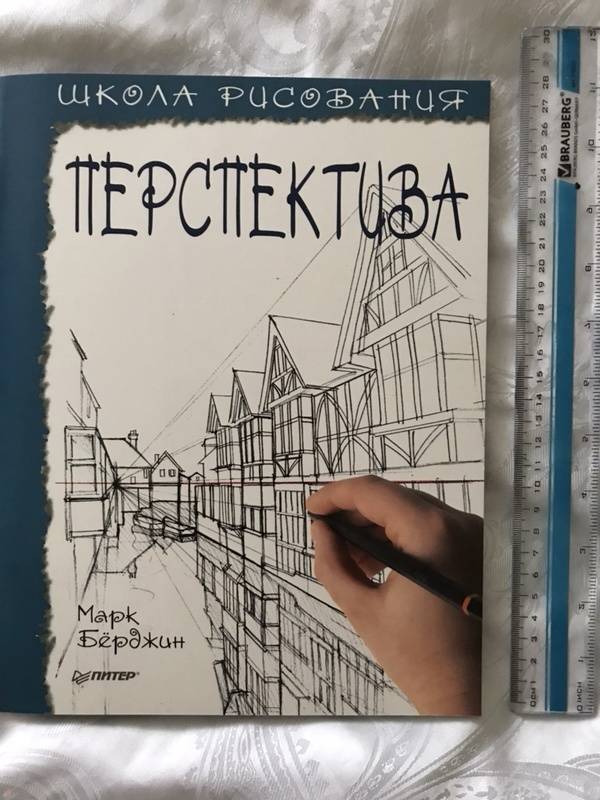 ШКОЛА РИСОВАНИЯ
ПЕРСПЕКТИВА
Марк
Бёрджин
ПИТЕР®
BRAUBERG
30
29
28
27
26
25
24
23
22
21
20
19
18
17
16
15
14
13
12
11
10
9
8
7
6
5
4
3
2
1
0CM